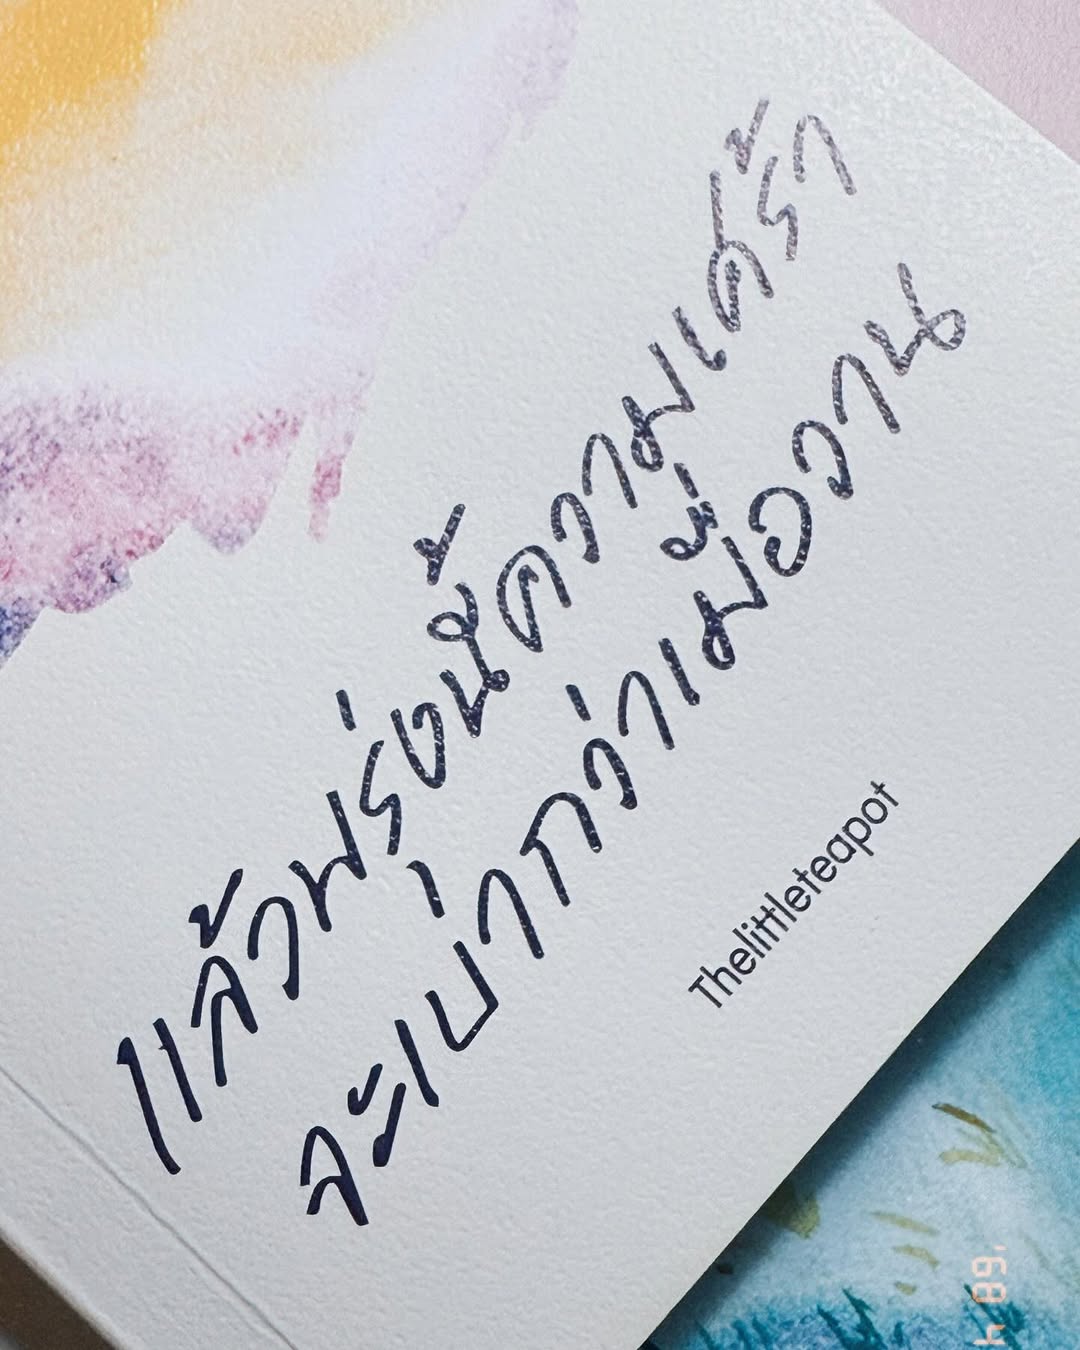 แล้วพรุ่งนี้ความเศร้า
จะเบากว่าเมื่อวาน
Thelittleteapot